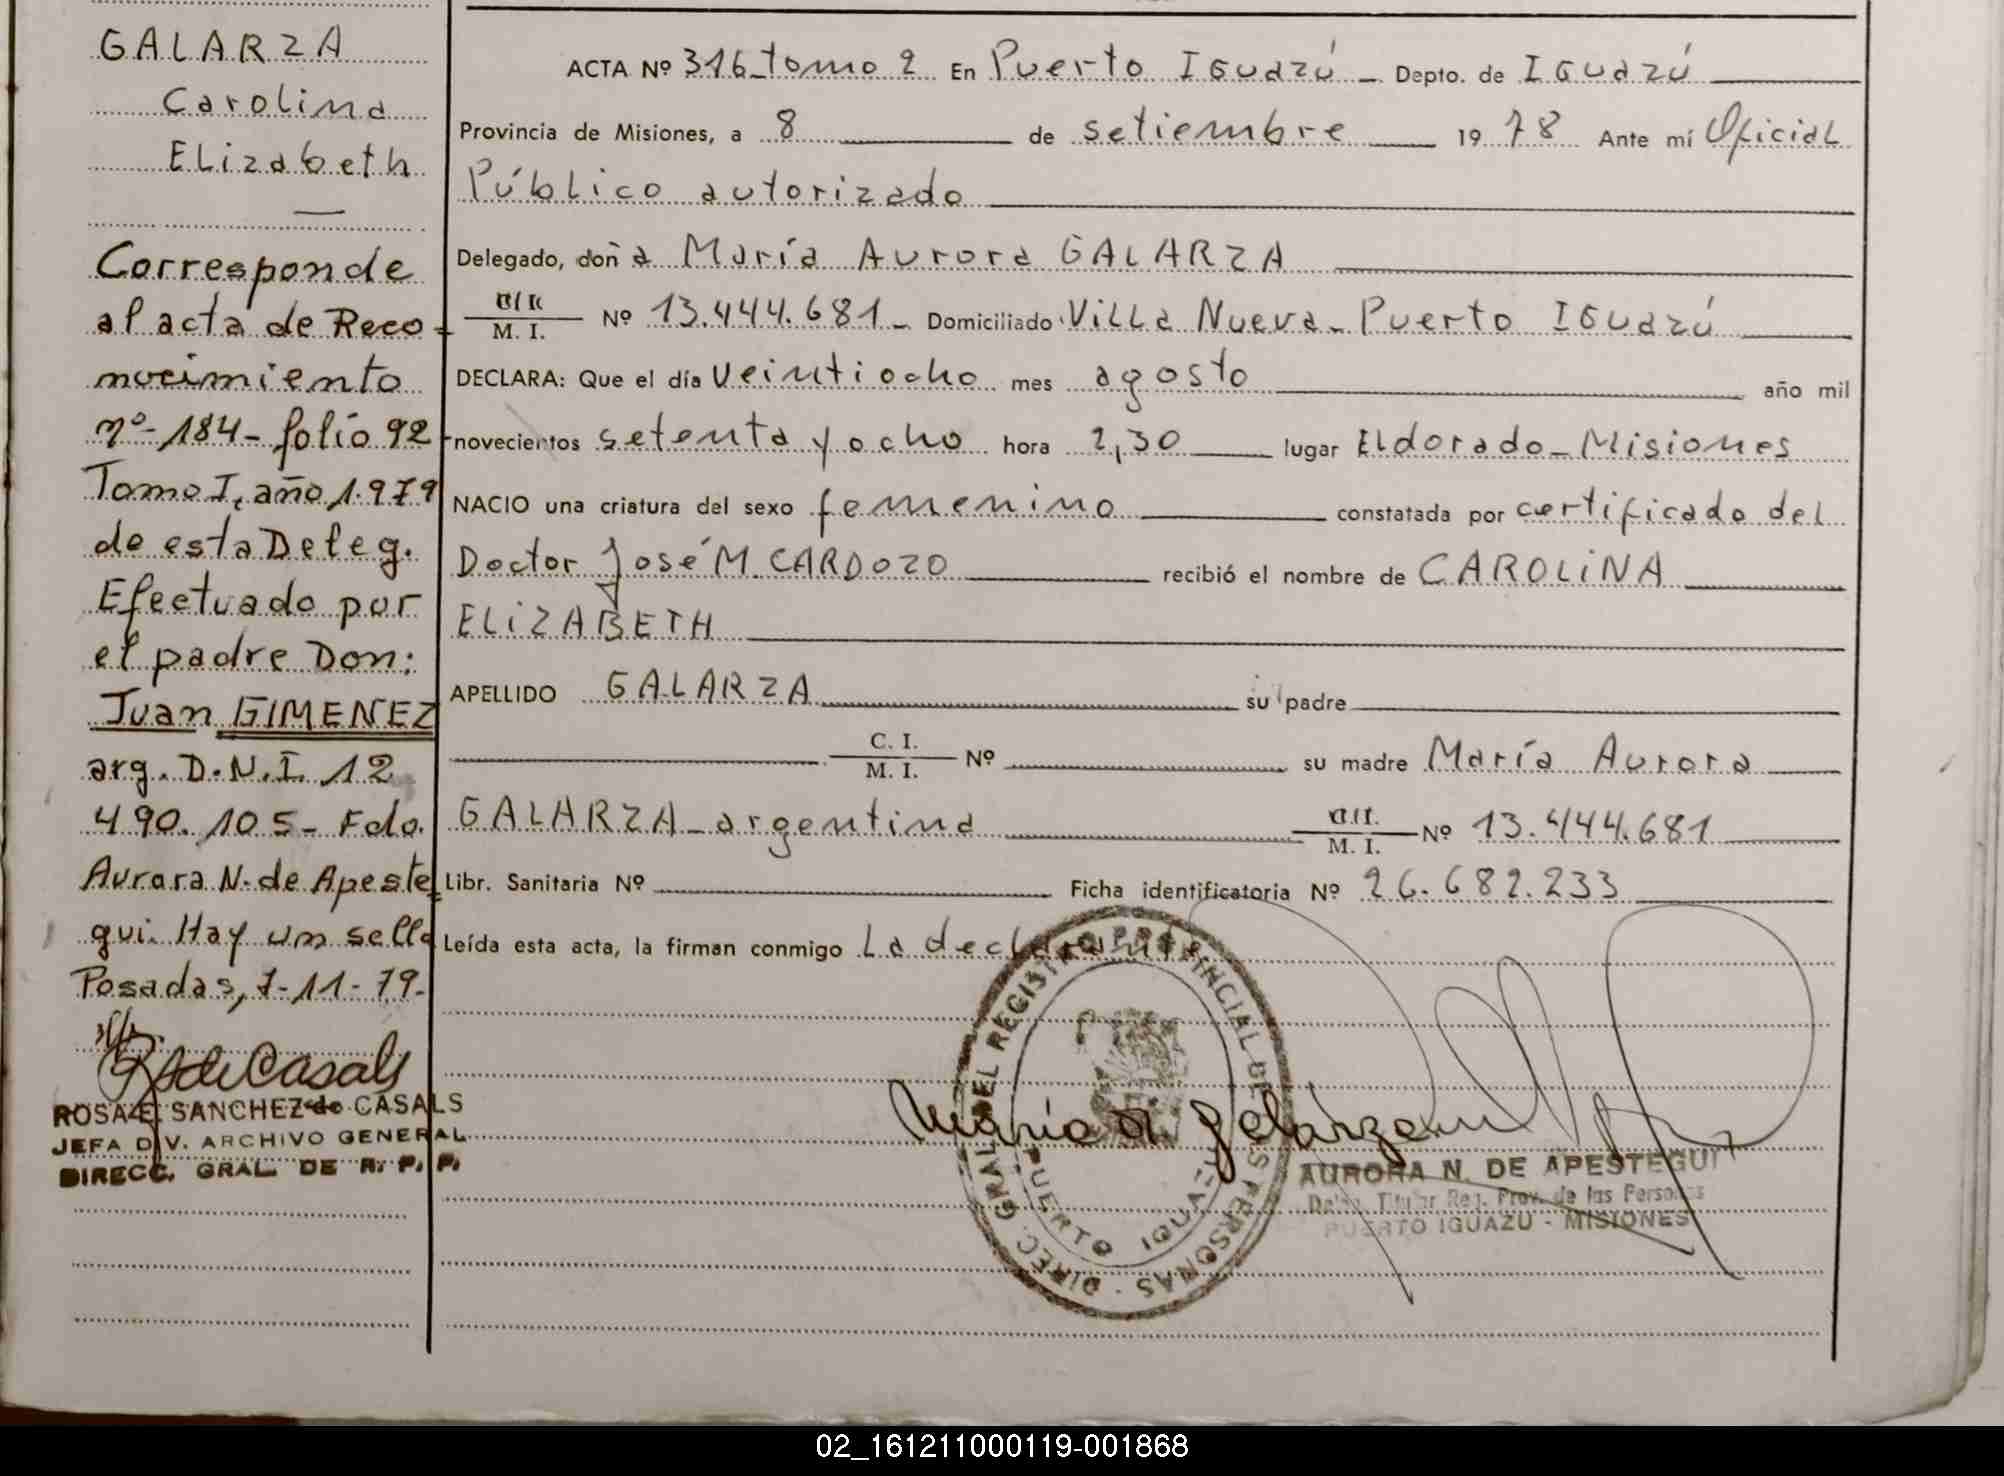 GALARZA
Carolina
Elizabeth
Corresponde
al acta de Reco-
nocimiento
nº-184-folio 92
Tomo I, año 1.979
de esta Deleg.
Efectuado por
el padre Don:
Juan GIMENEZ
arg. D.N.I. 12
490.105- Fdo.
Aurora N. de Apeste-
gui. Hay un sello
Posadas, 7-11-79.
R S de Casals
ROSA E. SANCHEZ de CASALS
JEFA DIV. ARCHIVO GENERAL
DIRECC. GRAL. DE R. P. P.
ACTA Nº 316 tomo 2 En Puerto Iguazú - Depto. de Iguazú
Provincia de Misiones, a 8 de setiembre 1978 Ante mí Oficial
Público autorizado
Delegado, doña María Aurora GALARZA
M. I. Nº 13.444.681 - Domiciliado Villa Nueva - Puerto Iguazú
DECLARA: Que el día veintiocho mes agosto año mil
novecientos setenta y ocho hora 2,30 lugar Eldorado - Misiones
NACIO una criatura del sexo femenino constatada por certificado del
Doctor José M. CARDOZO recibió el nombre de CAROLINA
ELIZABETH
APELLIDO GALARZA su padre
C. I.
M. I. Nº su madre María Aurora
GALARZA - argentina M. I. Nº 13.444.681
Libr. Sanitaria Nº Ficha identificatoria Nº 26.682.233
Leída esta acta, la firman conmigo La declarante
DIREC. GRAL. DEL REGISTRO PROVINCIAL DE LAS PERSONAS
PUERTO IGUAZU
María A. Galarza
AURORA N. DE APESTEGUI
Deleg. Titular Reg. Prov. de las Personas
PUERTO IGUAZU - MISIONES
02_161211000119-001868